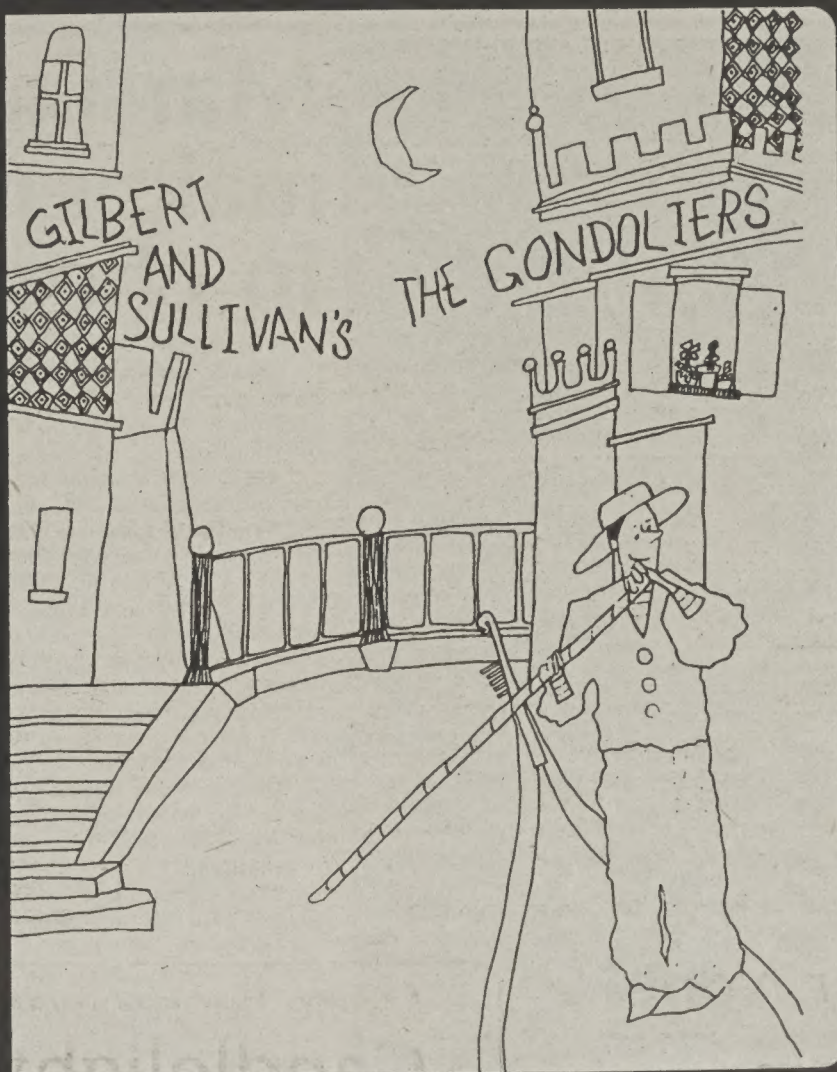 GILBERT
AND
SULLIVAN'S
THE GONDOLIERS